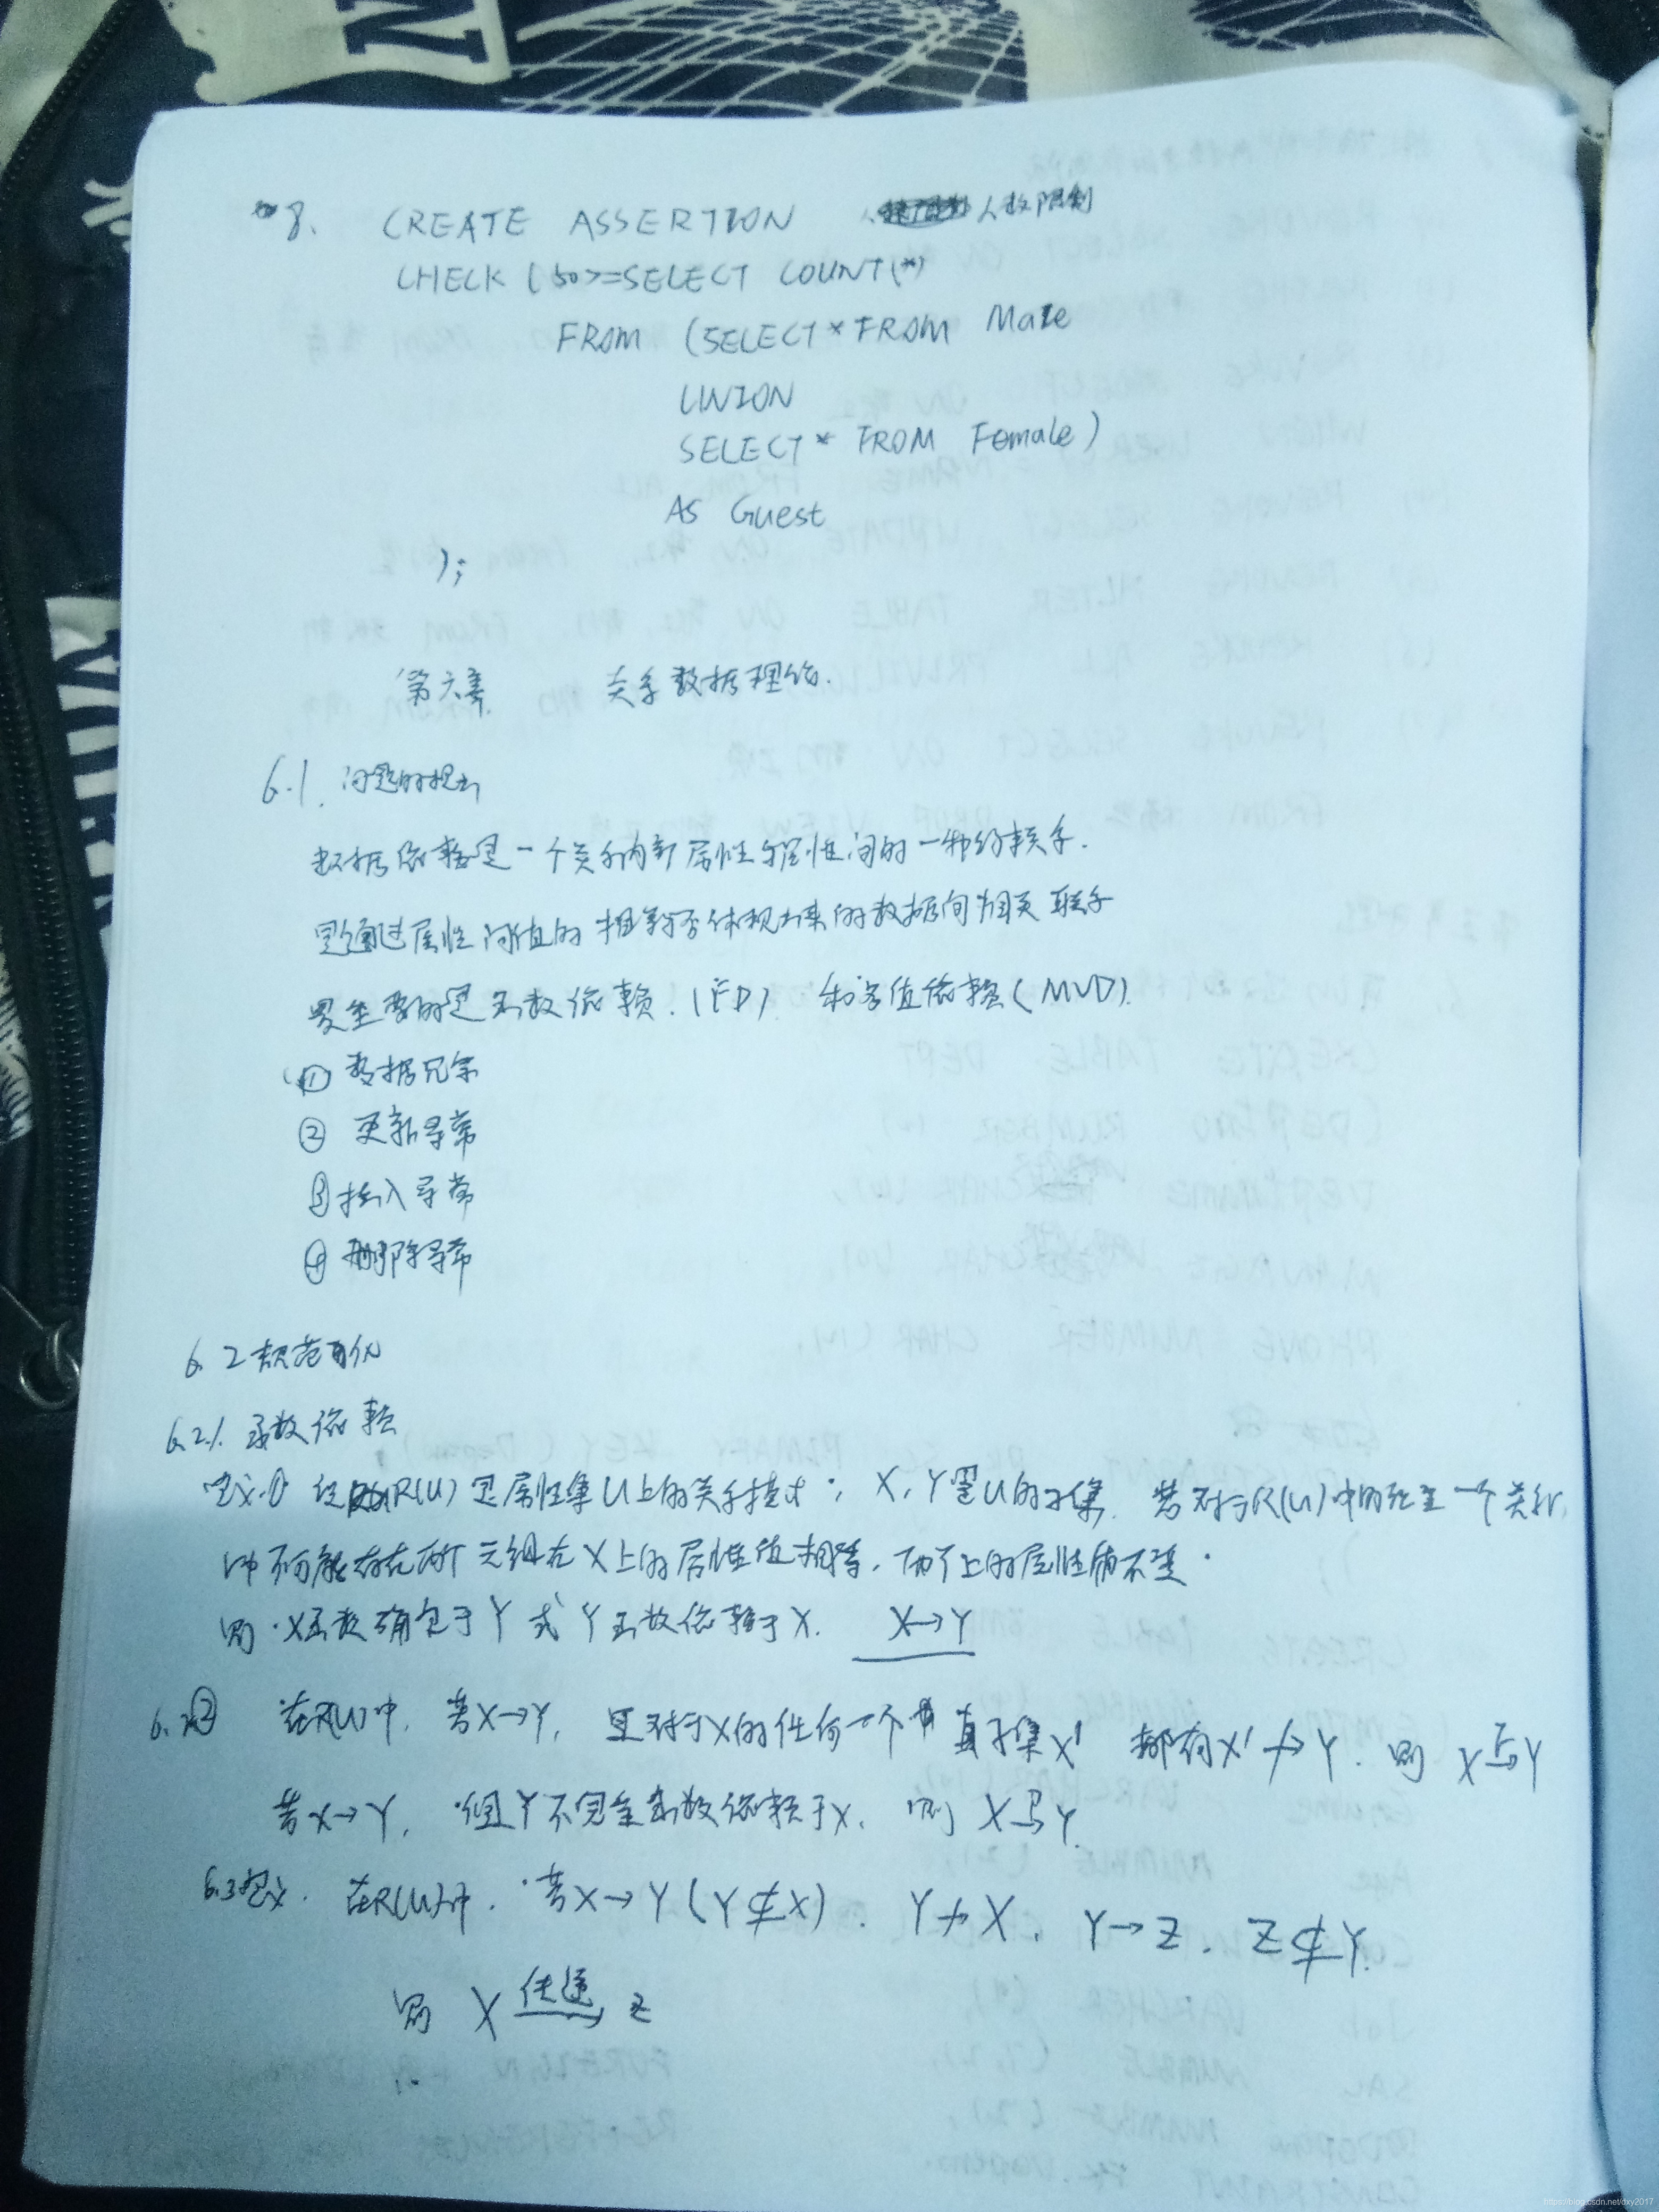 8. CREATE ASSERTION 人数限制
CHECK (50>=SELECT COUNT(*)
FROM (SELECT * FROM Male
UNION
SELECT * FROM Female)
As Guest
);
第六章 关系数据理论.
6.1. 问题的提出
数据依赖是一个关系内部属性与属性间的一种约联系.
是通过属性间值的相等与否体现出来的数据间相关联系
最重要的是函数依赖.(FD) 和多值依赖(MVD).
① 数据冗余
② 更新异常
③ 插入异常
④ 删除异常
6.2 规范化
6.2.1. 函数依赖
定义① 设R(U)是属性集U上的关系模式; X, Y是U的子集. 若对于R(U)中的任意一个关系r,
r中不可能存在两个元组在X上的属性值相等, 而Y上的属性值不等.
则 X函数确定于Y 或 Y函数依赖于X. X→Y
6.2② 在R(U)中, 若X→Y, 且对于X的任何一个真子集X' 都有X'↛Y. 则 X F→ Y
若X→Y, 但Y不完全函数依赖于X, 则 X P→ Y.
6.3定义. 在R(U)中, 若X→Y (Y⊄X). Y↛X, Y→Z. Z⊄Y.
则 X 传递→ Z
NUM
https://blog.csdn.net/dxy2017